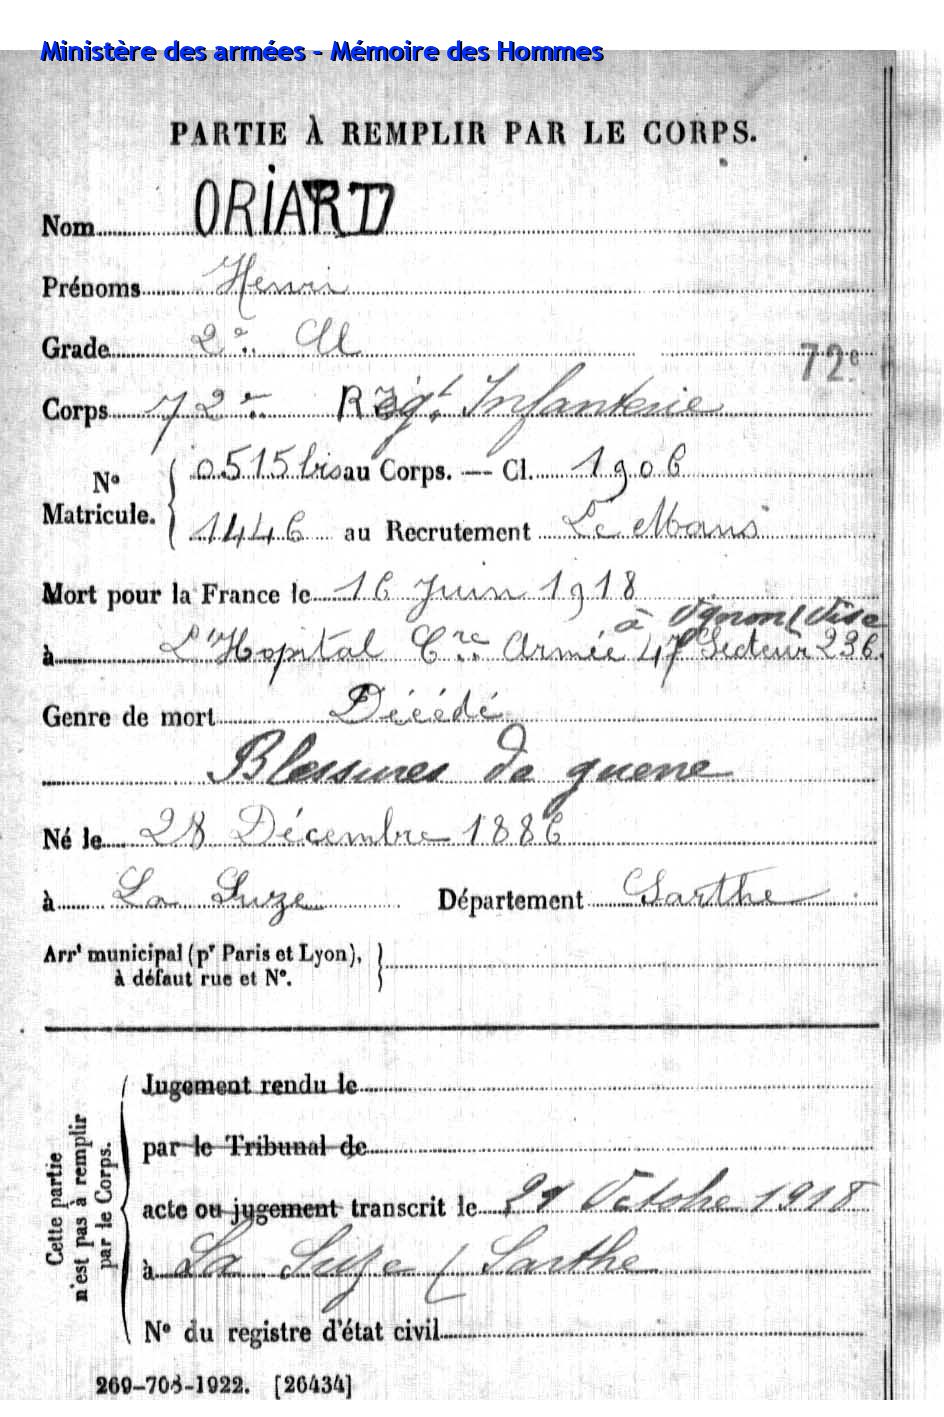 Ministère des armées - Mémoire des Hommes
PARTIE À REMPLIR PAR LE CORPS.
Nom ORIARD
Prénoms Henri
Grade 2e Cl
72e
Corps 72e Régt Infanterie
No Matricule. 0515 bis au Corps. — Cl. 1906
1446 au Recrutement Le Mans
Mort pour la France le 16 Juin 1918
à
à L'Hopital Armée 47 Secteur 236.
Genre de mort Décédé
Blessures de guerre
Né le 28 Décembre 1886
à La Suze Département Sarthe
Arrt municipal (pr Paris et Lyon),
à défaut rue et No.
Cette partie
n'est pas à remplir
par le Corps.
Jugement rendu le
par le Tribunal de
acte ou jugement transcrit le 21 Octobre 1918
à La Suze / Sarthe
No du registre d'état civil
269-708-1922. [26434]